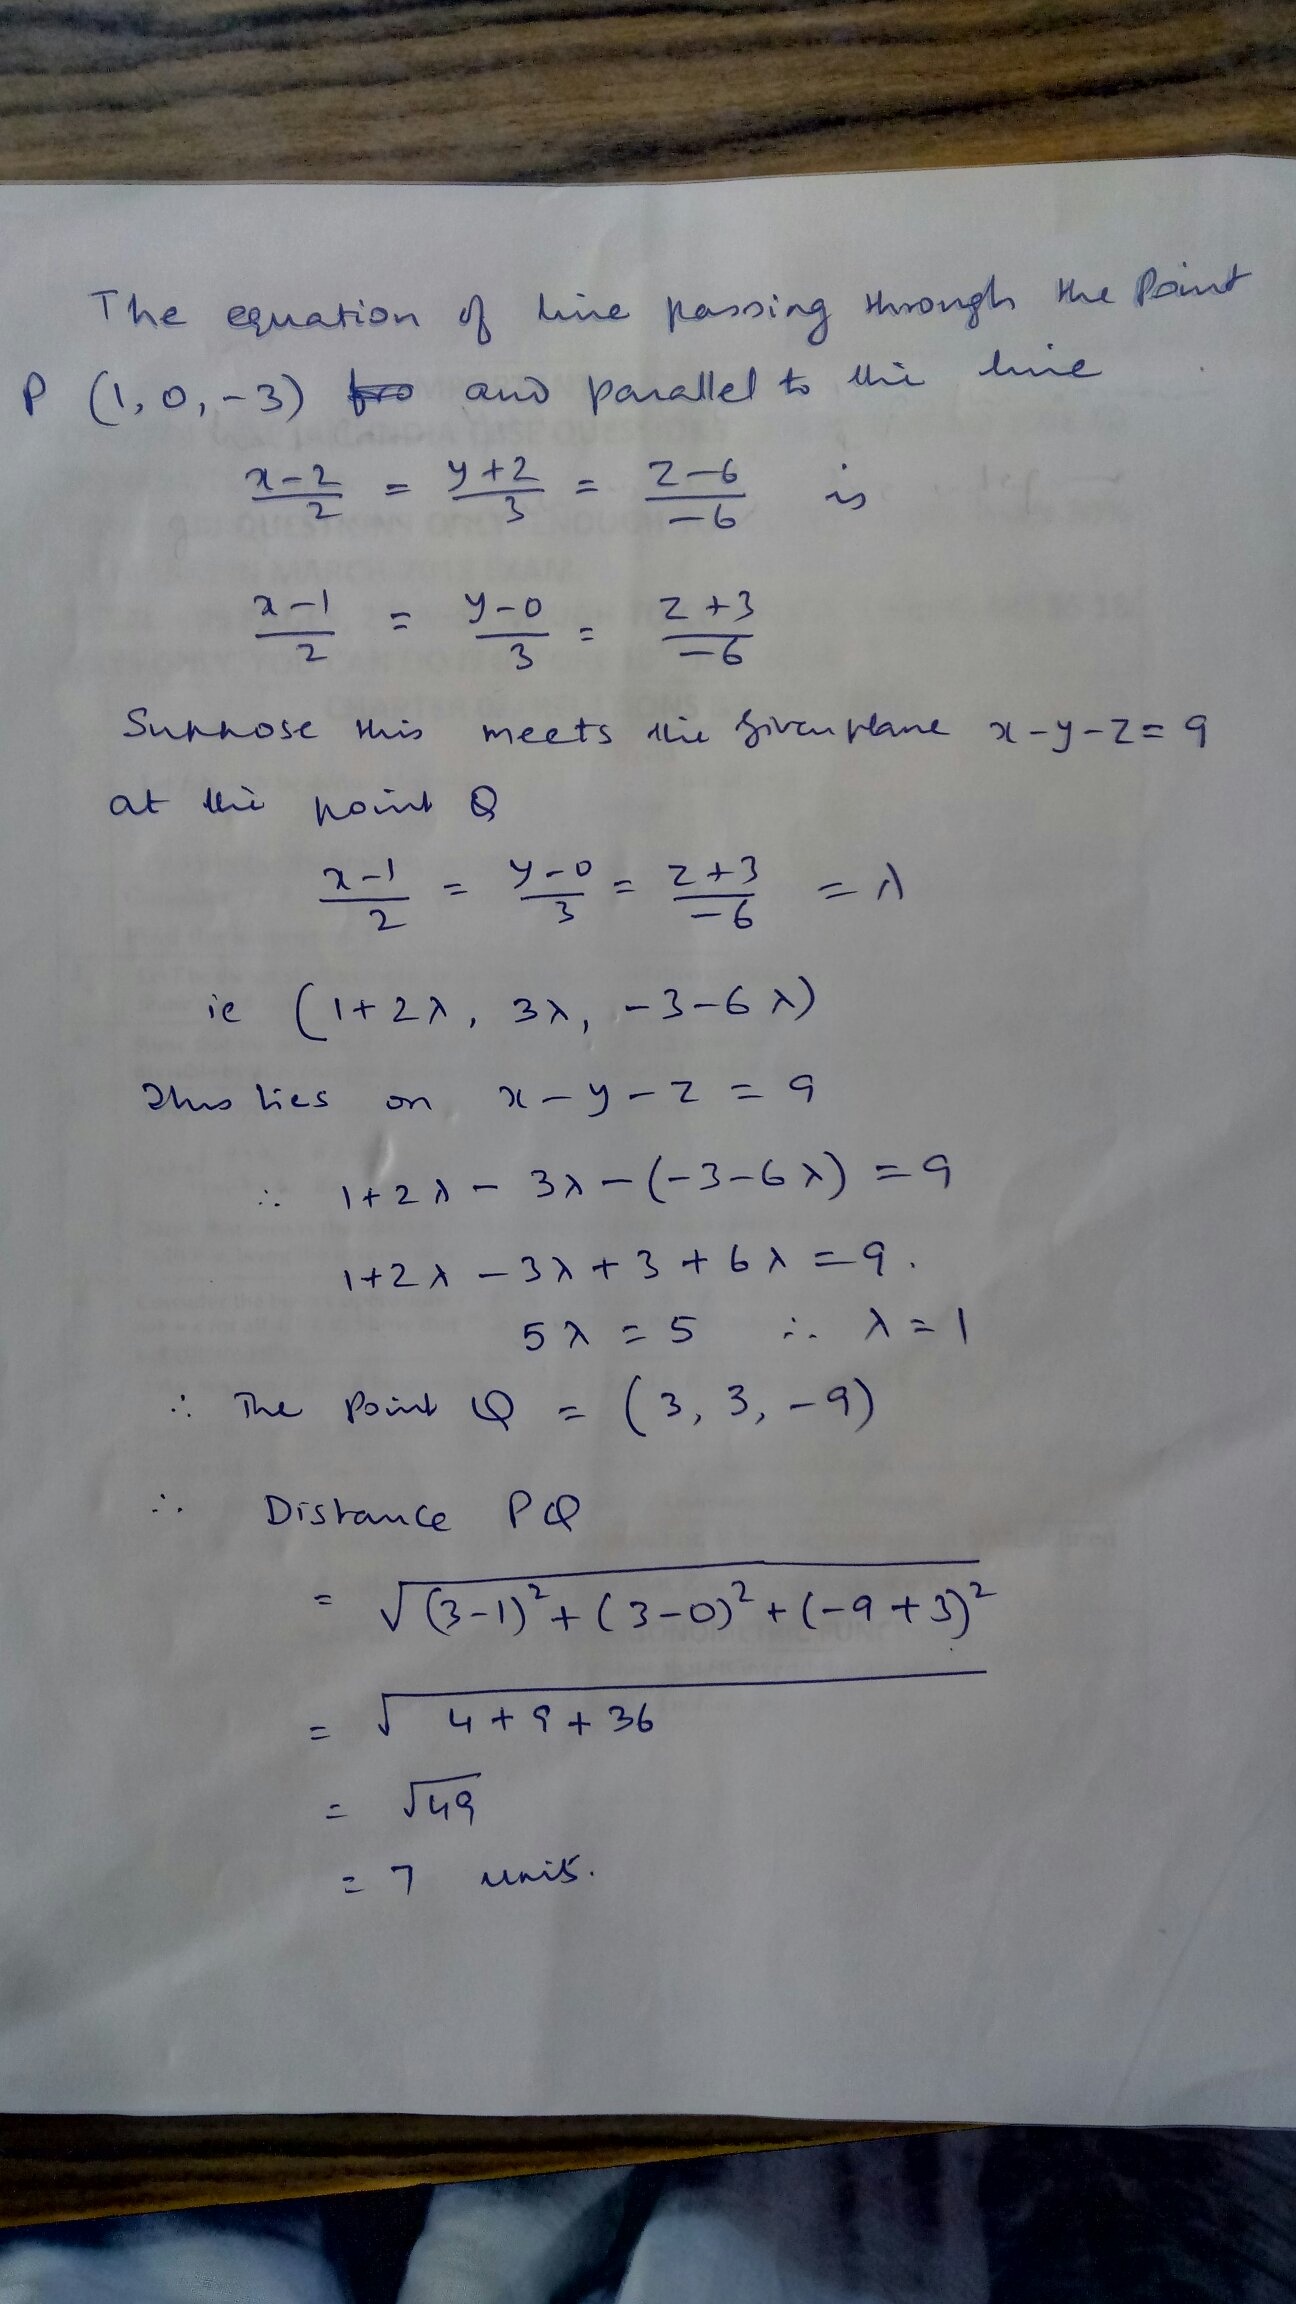 The equation of line passing through the Point
P (1, 0, -3) fro and parallel to the line
x-2/2 = y+2/3 = z-6/-6 is
x-1/2 = y-0/3 = z+3/-6
Suppose this meets the given plane x-y-z=9
at the point Q
x-1/2 = y-0/3 = z+3/-6 = λ
ie (1+2λ, 3λ, -3-6λ)
This lies on x-y-z = 9
∴ 1+2λ - 3λ -(-3-6λ) = 9
1+2λ - 3λ + 3 + 6λ = 9.
5λ = 5 ∴ λ = 1
∴ The Point Q = (3, 3, -9)
∴ Distance PQ
= √(3-1)² + (3-0)² + (-9+3)²
= √4+9+36
= √49
= 7 units.